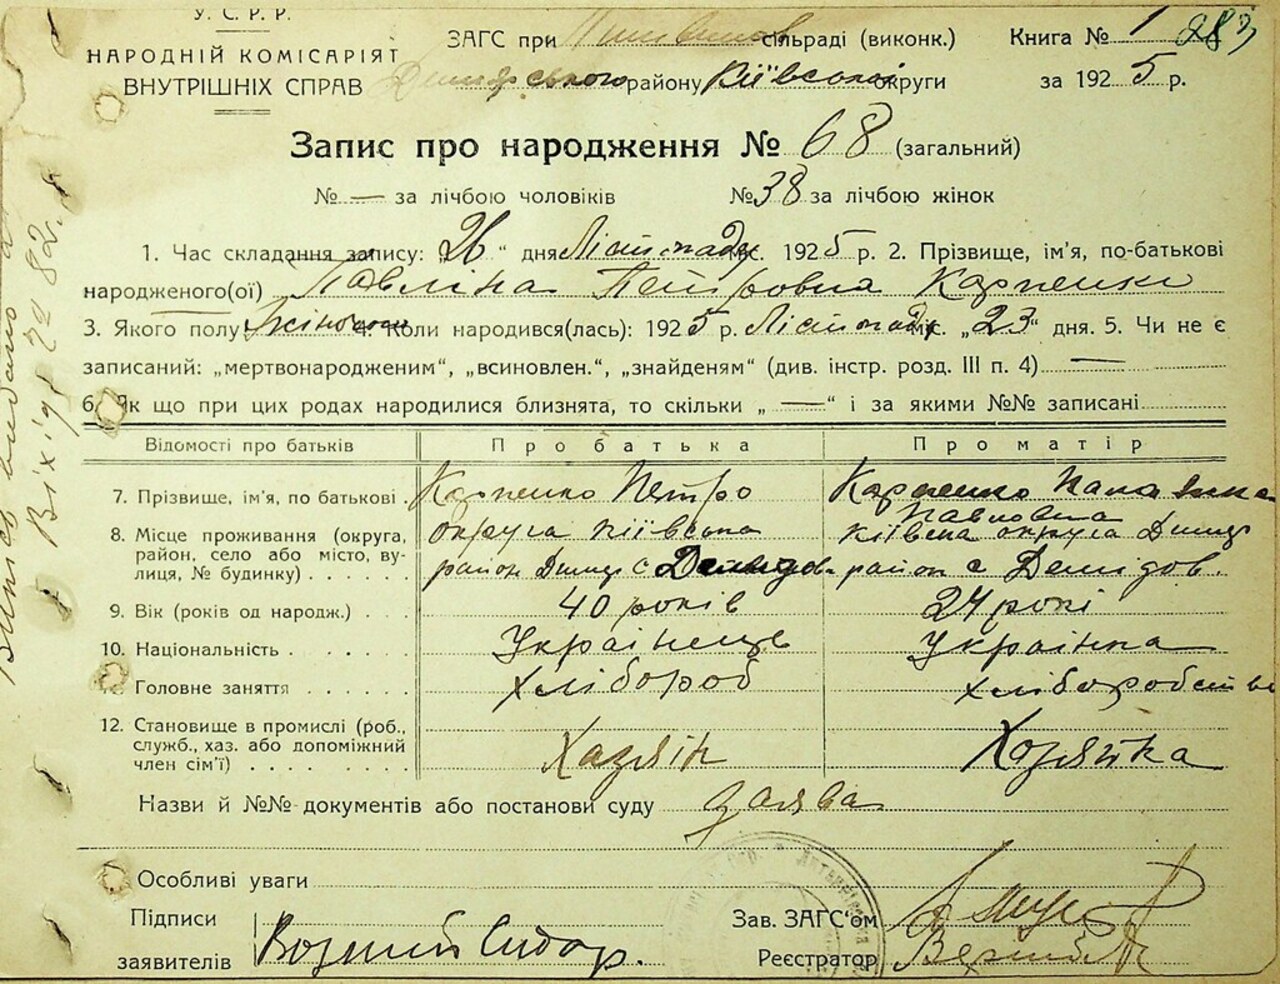 У. С. Р. Р.
НАРОДНІЙ КОМІСАРІЯТ
ВНУТРІШНІХ СПРАВ
ЗАГС при сільраді (виконк.)
Димерського району Київської округи
Книга № 1
за 1925 р.
Запис про народження № 68 (загальний)
№ — за лічбою чоловіків №38 за лічбою жінок
1. Час складання запису: „26“ дня Лістопаду міс. 1925 р. 2. Прізвище, ім'я, по-батькові
народженого(ої) Павліна Петровна Карпенко
3. Якого полу жіночого 4. Коли народився(лась): 1925 р. Лістопаду міс. „23“ дня. 5. Чи не є
записаний: „мертвонародженим“, „всиновлен.“, „знайденям“ (див. інстр. розд. III п. 4) —
6. Як що при цих родах народилися близнята, то скільки „ — “ і за якими №№ записані
Відомості про батьків Про батька Про матір
7. Прізвище, ім'я, по батькові . Карпенко Петро Карпенко Павловна
8. Місце проживання (округа, район, село або місто, вулиця, № будинку) . . . . . округа Київська район Димер с Демидов Київська округа Димер район с Демідов.
9. Вік (років од народж.) . . 40 років 24 рокі
10. Національність . . . . . . Українець Українка
Головне заняття . . . . . . хлібороб хліборобство
12. Становище в промислі (роб., служб., хаз. або допоміжний член сім'ї) . . . . . . . . Хазяін Хазяйка
Назви й №№ документів або постанови суду заява
Особливі уваги
Підписи
заявителів Возний Сидор.
Зав. ЗАГС'ом
Реєстратор